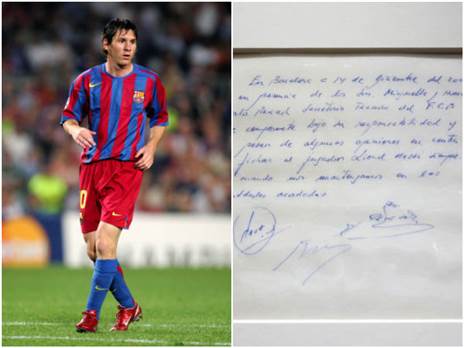 En Barcelona a 14 de diciembre del
en presencia de los Srs. Minguella y Horac
Rexach Secretario Técnico del F.C.B
compromete bajo su responsabilidad y
pesar de algunas opiniones en contra
fichar al jugador Lionel Messi siempre
cuando nos mantengamos en las
tidades acordadas